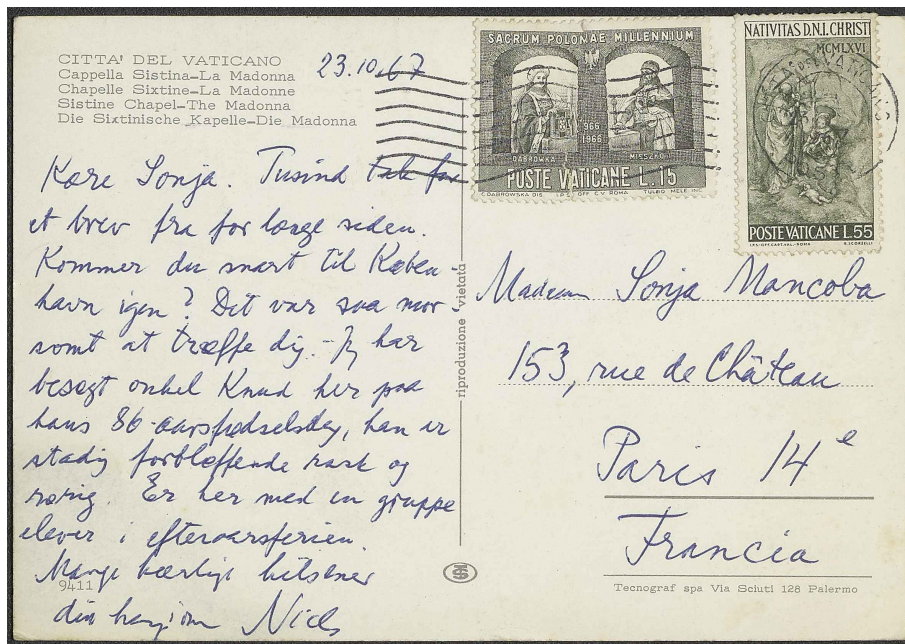 CITTA' DEL VATICANO
Cappella Sistina-La Madonna
Chapelle Sixtine-La Madonne
Sistine Chapel-The Madonna
Die Sixtinische Kapelle-Die Madonna
23.10.67
Kære Sonja. Tusind tak for
et brev fra for længe siden.
Kommer du snart til Køben
havn igen? Det var saa mor-
somt at træffe dig. - Jeg har
besøgt onkel Knud her paa
hans 86-aarsfødselsdag, han er
stadig forbløffende rask og
rørig. Er her med en gruppe
elever i efteraarsferien.
Mange kærlige hilsner
din Niels
9411
riproduzione vietata
SACRUM POLONAE MILLENNIUM
966
1966
DABROWKA
MIESZKO
POSTE VATICANE L.15
C.DABROWSKA DIS. I.P.S. OFF. C.V. ROMA TULBO MELE INC.
NATIVITAS D.N.I. CHRISTI
MCMLXVI
POSTE VATICANE L.55
I.P.S.-OFF.CART.VAL.-ROMA
Madam Sonja Mancoba
153, rue de Château
Paris 14e
Francia
Tecnograf spa Via Sciuti 128 Palermo